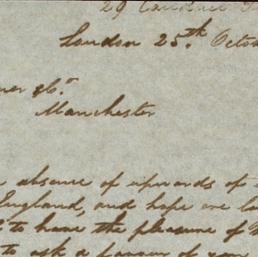 29
London 25.th Octo
& Co.
Manchester
absence of upwards of
England, and hope
to have the pleasure of
to ask a favour of you